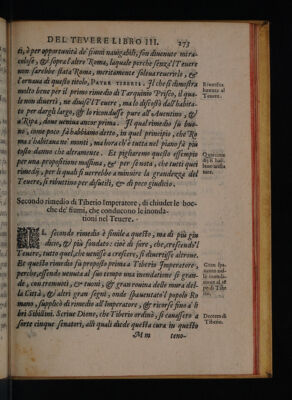 DEL TEVERE LIBRO III. 273
ti, è per opportunità de' fiumi nauigabili, son diuenute mira-
colose, & sopra l'altre Roma, laquale perche senza'l Teuere
non sarebbe stata Roma, meritamente soleua reuerirlo, &
l'ornaua di questo titolo, PATER TIBERIS. Il che si dimostra
molto bene per il primo rimedio di Tarquinio Prisco, il qua-
le non diuertì, ne diuise'l Teuere, ma lo discostò dall'habita-
to per dargli largo, & lo ricondusse pure all'Auentino, & à
Ripa, doue ueniua ancor prima. Il qual rimedio fù buo-
no, come poco fà habbiamo detto, in quel principio, che Ro-
ma s'habitaua ne' monti, ma hora ch'è tutta nel piano fà più
tosto danno che altramente. Et pigliaremo questo essempio
per una propositione massima, & per se nota, che tutti quei
rimedij, per li quali si uerrebbe à minuire la grandezza del
Teuere, si ributtino per disutili, & di poco giudicio.
Riuerēza
hauuta al
Teuere.
Secondo rimedio di Tiberio Imperatore, di chiuder le boc-
che de' fiumi, che conducono le inonda-
tioni nel Teuere.
IL secondo rimedio è simile a questo, ma di più giu
dicio, & più fondato: cioè di fare, che, crescendo'l
Teuere, tutto quel, che uenisse a crescere, si diuertisse altroue.
Et questo rimedio fù proposto prima a Tiberio Imperatore,
perche, essendo uenuta al suo tempo una inondatione sì gran-
de, con tremuoti, & tuoni, & gran rouina delle mura del-
la Città, & altri gran segni, onde spauentato'l popolo Ro
mano, supplicò di rimedio all'Imperatore, & ricorse fino a li
bri Sibillini. Scriue Dione, che Tiberio ordinò, si cauassero a
sorte cinque senatori, alli quali diede questa cura in questo
Decreto di
Tiberio.
M m teno-